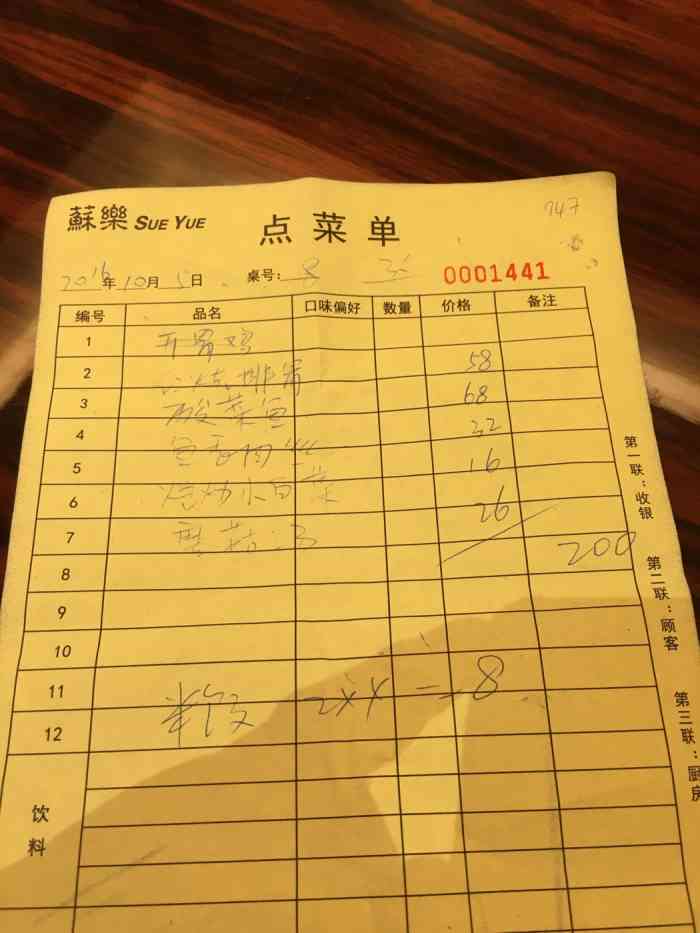 蘇樂 SUE YUE 点菜单 747
2016年10月5日 桌号: 8 0001441
编号 品名 口味偏好 数量 价格 备注
1 开胃鸡
2 红烧排骨 58
3 酸菜鱼 68
4 鱼香肉丝 32
5 炝炒小白菜 16
6 26
7 蘑菇汤 200
8
9
10
11
12 米饭 2×4=8
饮料
第一联:收银
第二联:顾客
第三联:厨房